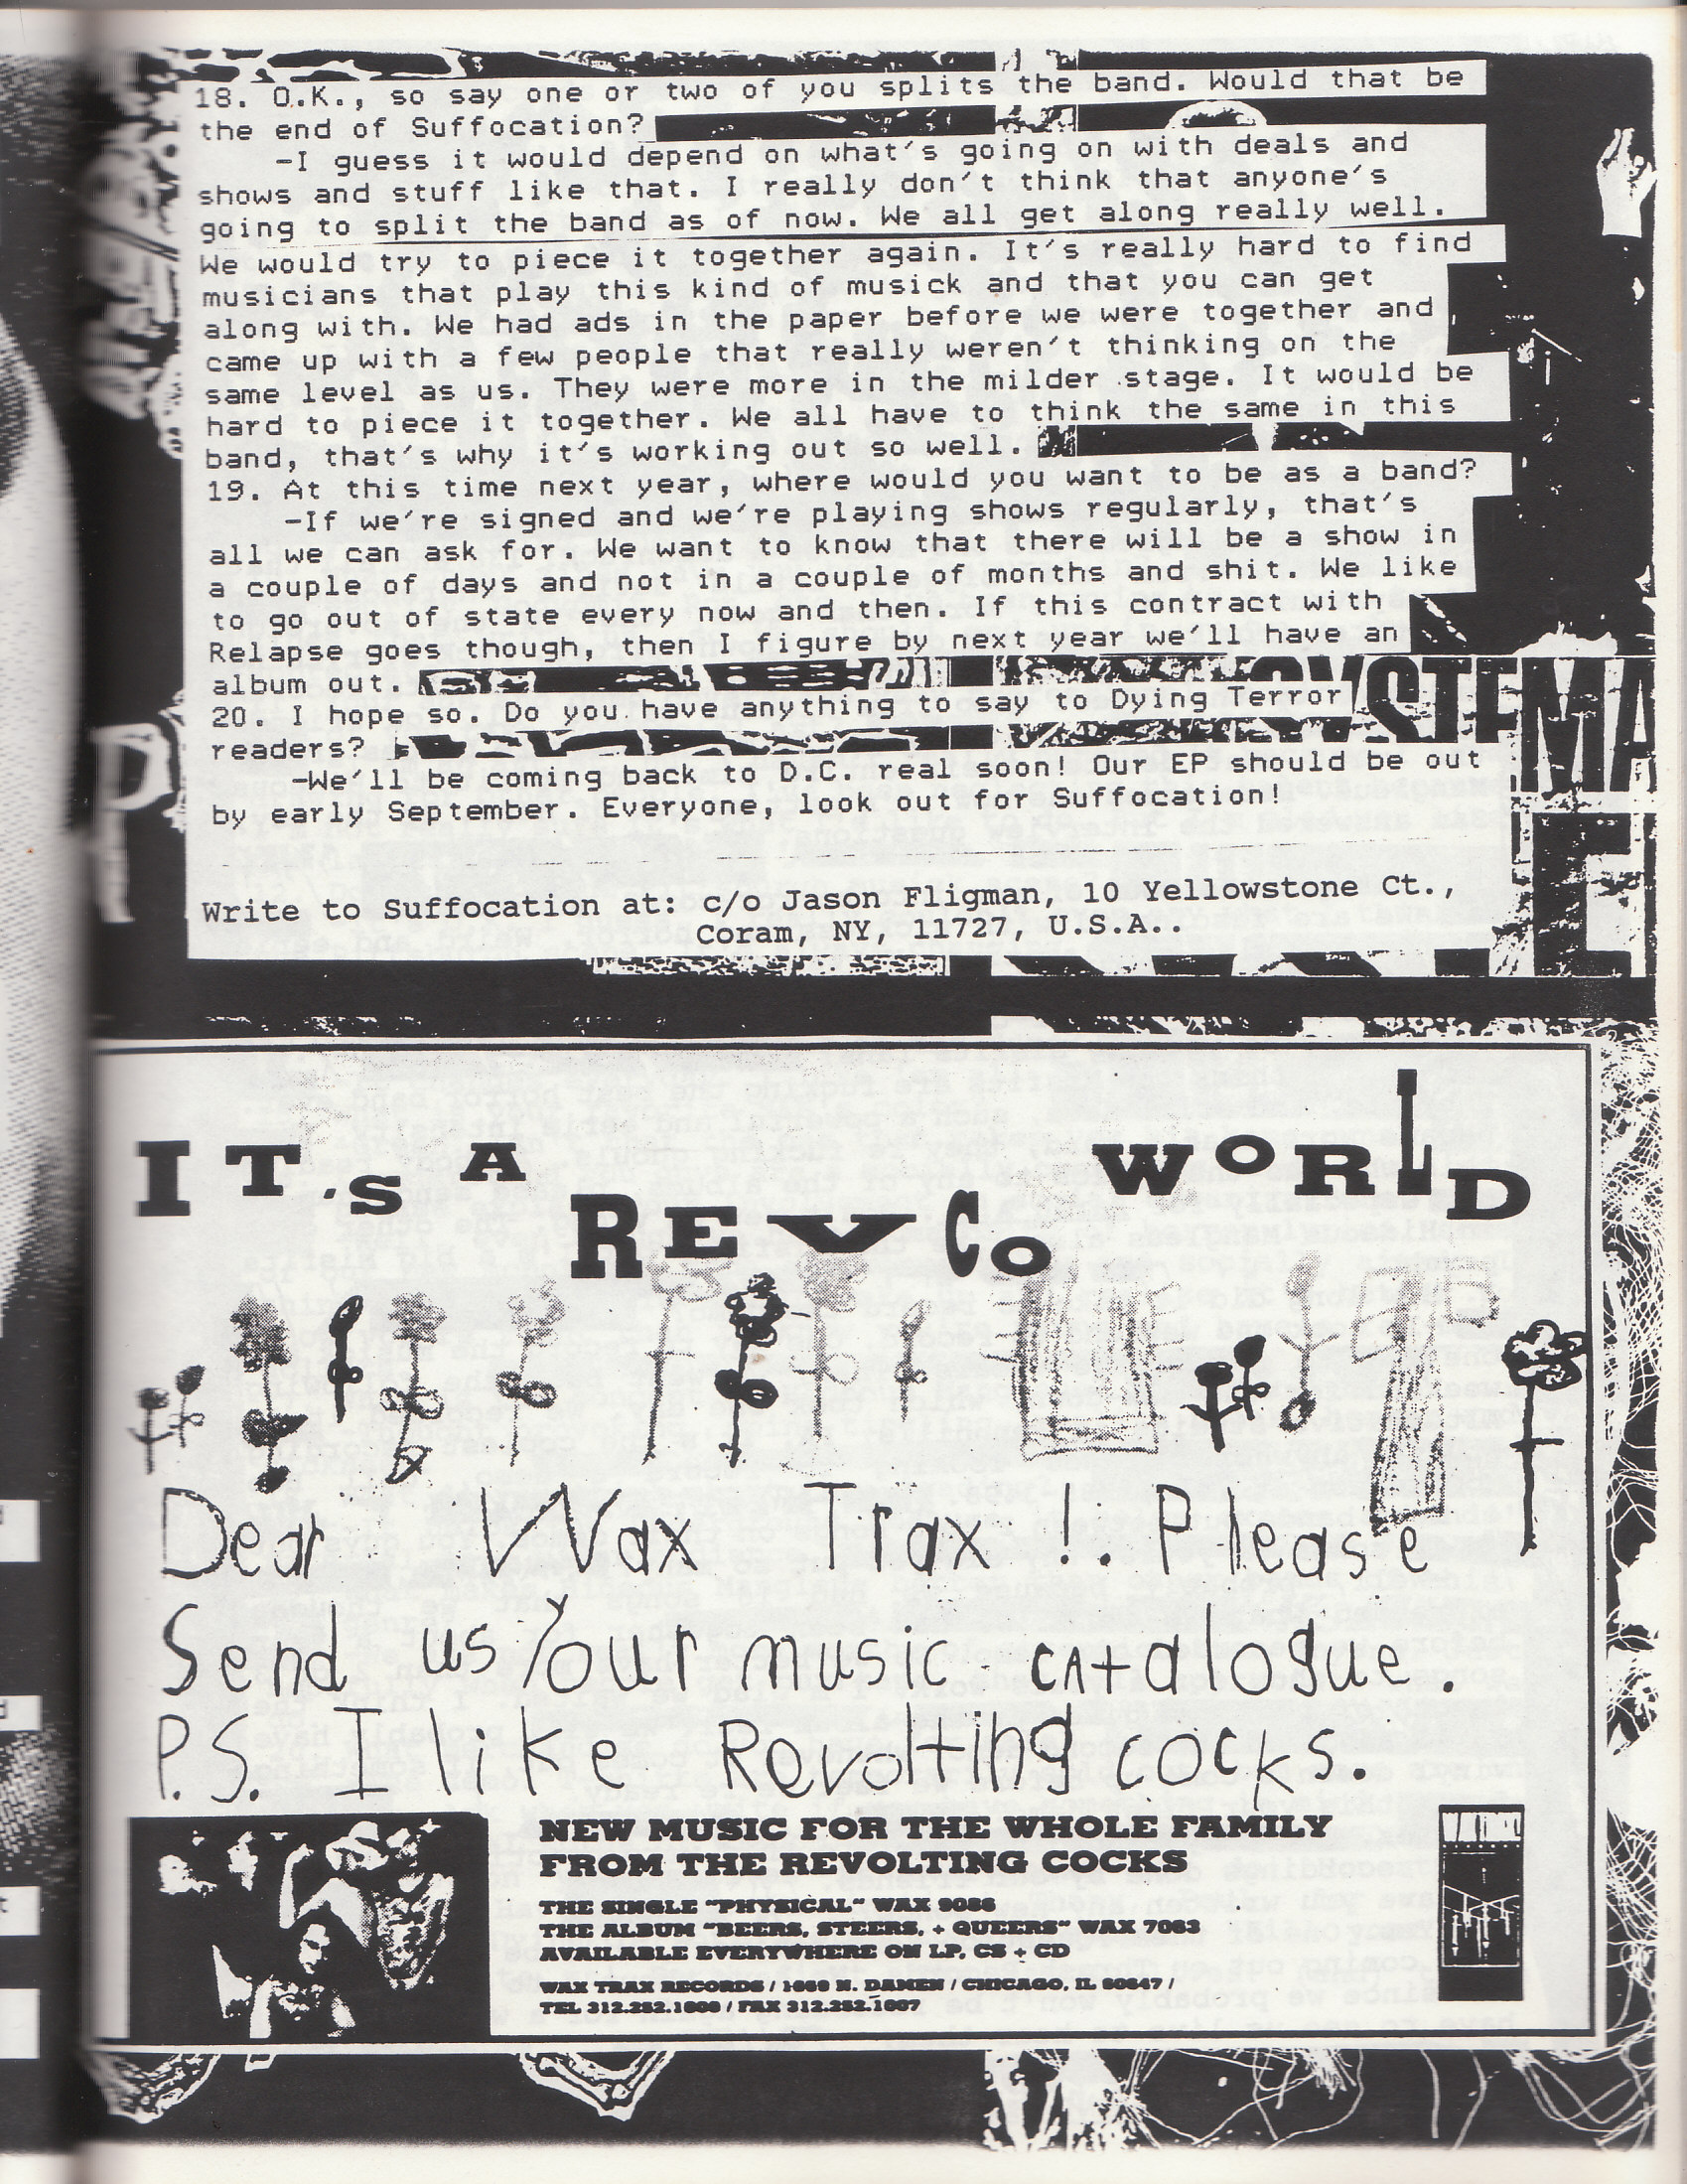 18. O.K., so say one or two of you splits the band. Would that be
the end of Suffocation?
-I guess it would depend on what's going on with deals and
shows and stuff like that. I really don't think that anyone's
going to split the band as of now. We all get along really well.
We would try to piece it together again. It's really hard to find
musicians that play this kind of musick and that you can get
along with. We had ads in the paper before we were together and
came up with a few people that really weren't thinking on the
same level as us. They were more in the milder stage. It would be
hard to piece it together. We all have to think the same in this
band, that's why it's working out so well.
19. At this time next year, where would you want to be as a band?
-If we're signed and we're playing shows regularly, that's
all we can ask for. We want to know that there will be a show in
a couple of days and not in a couple of months and shit. We like
to go out of state every now and then. If this contract with
Relapse goes though, then I figure by next year we'll have an
album out.
20. I hope so. Do you have anything to say to Dying Terror
readers?
-We'll be coming back to D.C. real soon! Our EP should be out
by early September. Everyone, look out for Suffocation!
Write to Suffocation at: c/o Jason Fligman, 10 Yellowstone Ct.,
Coram, NY, 11727, U.S.A..
IT'S A REVCO WORLD
Dear Wax Trax!. Please
Send us Your music catalogue.
P.S. I like Revolting cocks.
NEW MUSIC FOR THE WHOLE FAMILY
FROM THE REVOLTING COCKS
THE SINGLE "PHYSICAL" WAX 9086
THE ALBUM "BEERS, STEERS, + QUEERS" WAX 7063
AVAILABLE EVERYWHERE ON LP, CS + CD
WAX TRAX RECORDS / 1659 N. DAMEN / CHICAGO, IL 60647 /
TEL 312.252.1000 / FAX 312.252.1007